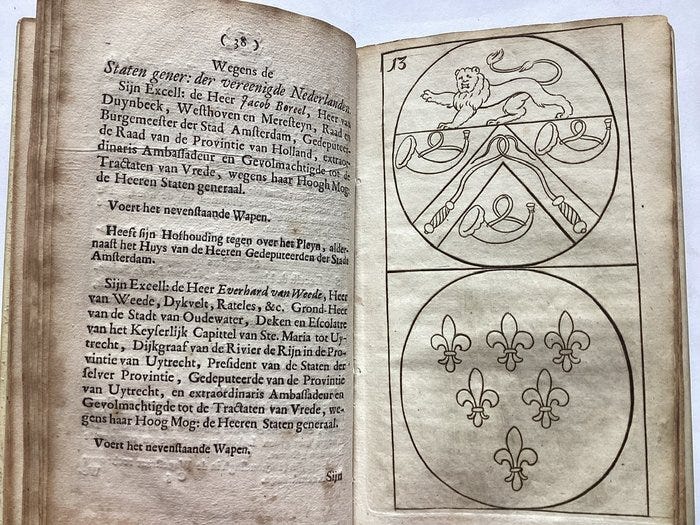 ( 38 )
Wegens de
Staten gener: der vereenigde Nederlanden.
Sijn Excell: de Heer Jacob Boreel, Heer van
Duynbeek, Westhoven en Meresteyn, Raad en
Burgemeester der Stad Amsterdam, Gedeputeer-
de Raad van de Provintie van Holland, extraor-
dinaris Ambassadeur en Gevolmachtigde tot de
Tractaten van Vrede, wegens haar Hoogh Mog:
de Heeren Staten generaal.
Voert het nevenstaande Wapen.
Heeft sijn Hofhouding tegen over het Pleyn, alder-
naast het Huys van de Heeren Gedeputeerden der Stadt
Amsterdam.
Sijn Excell: de Heer Everhard van Weede, Heer
van Weede, Dykvelt, Rateles, &c. Grond-Heer
van de Stadt van Oudewater, Deken en Escolatre
van het Keyserlijk Capittel van Ste. Maria tot Uy-
trecht, Dijkgraaf van de Rivier de Rijn in de Pro-
vintie van Uytrecht, President van de Staten der
selver Provintie, Gedeputeerde van de Provintie
van Uytrecht, en extraordinaris Ambassadeur en
Gevolmachtigde tot de Tractaten van Vrede, we-
gens haar Hoog Mog: de Heeren Staten generaal.
Voert het nevenstaande Wapen.
Sijn
13